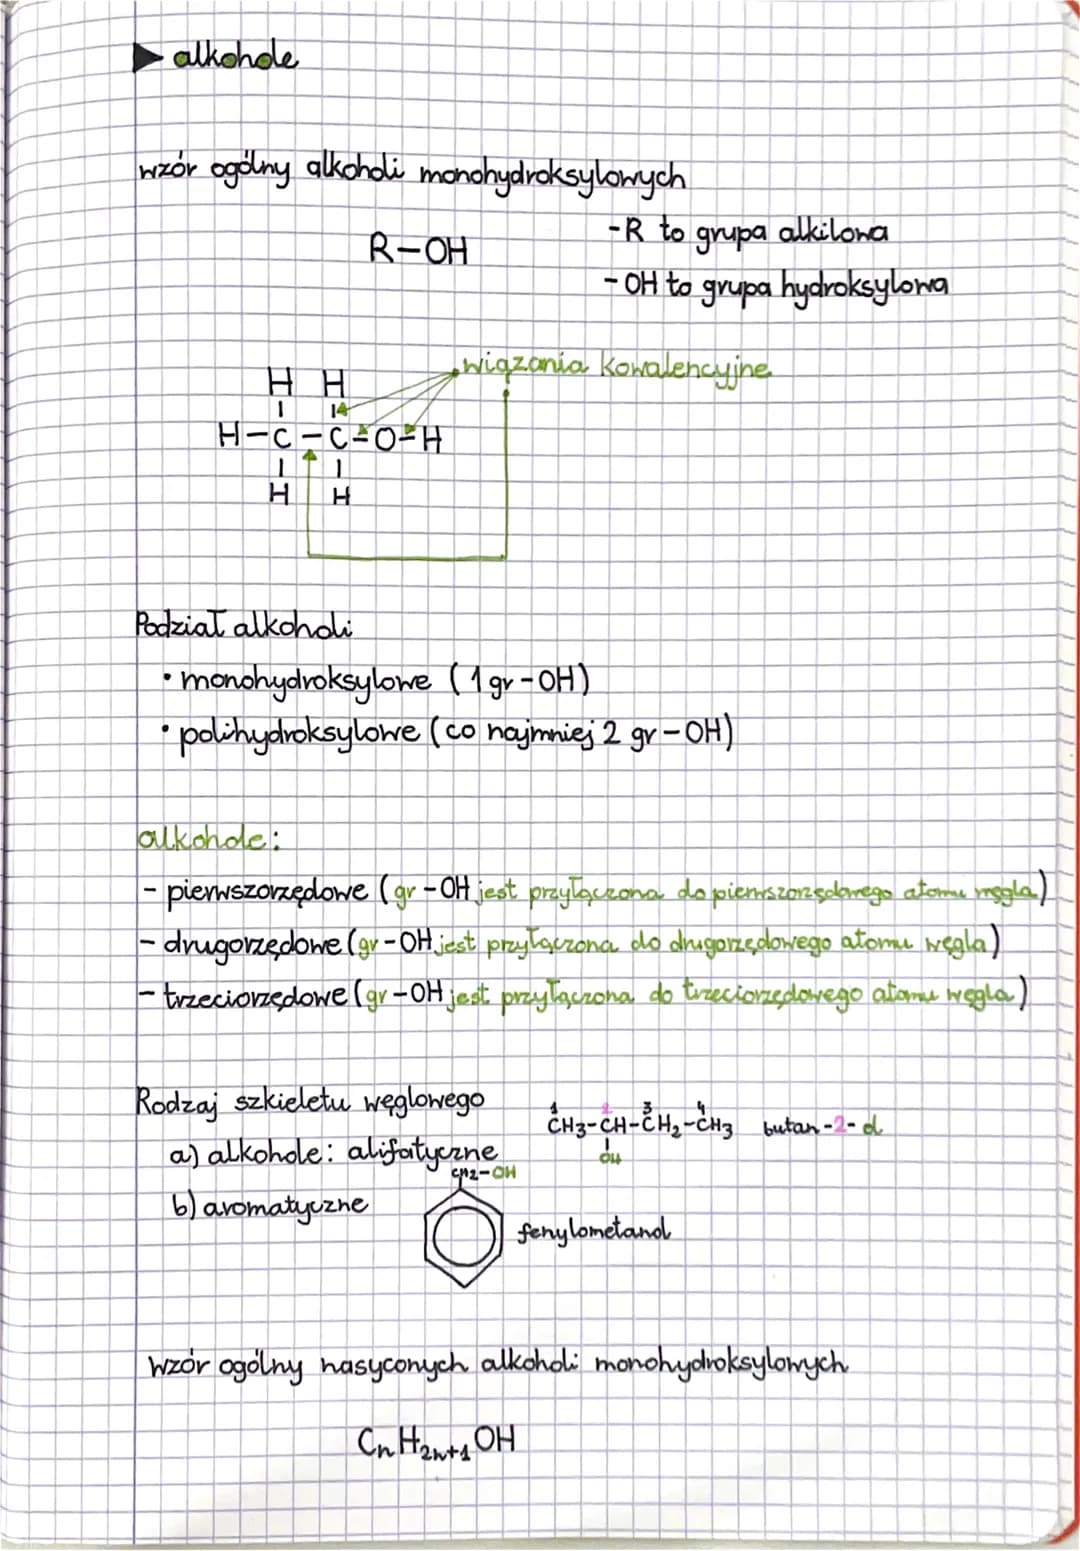 ▶ alkohole
wzór ogólny alkoholi monohydroksylowych
R-OH
-R to grupa alkilowa
-OH to grupa hydroksylowa
wiązania kowalencyjne
H H
H-C-C-O-H
H H
Podział alkoholi
• monohydroksylowe (1 gr-OH)
• polihydroksylowe (co najmniej 2 gr-OH)
alkohole:
- pierwszorzędowe (gr-OH jest przyłączona do pierwszorzędowego atomu węgla)
- drugorzędowe (gr-OH jest przyłączona do drugorzędowego atomu węgla)
- trzeciorzędowe (gr-OH jest przyłączona do trzeciorzędowego atomu węgla)
Rodzaj szkieletu węglowego
1 2 3 4
CH3-CH-CH2-CH3 butan-2-ol
OH
a) alkohole: alifatyczne
CH2-OH
b) aromatyczne
fenylometanol
wzór ogólny nasyconych alkoholi monohydroksylowych
CnH2n+1OH